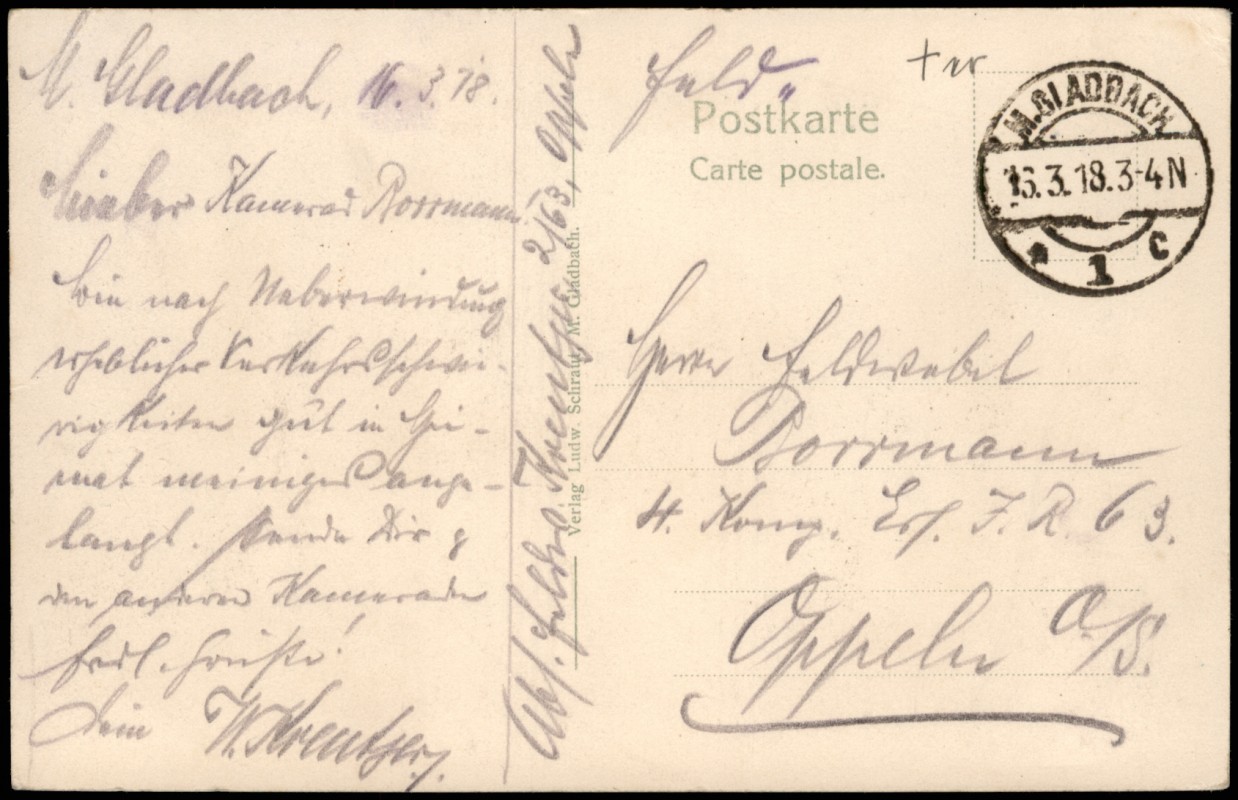 M. Gladbach, 16.3.18.
Lieber Kamerad Borrmann
Bin nach Ueberwindung
erheblicher Verkehrsschwie-
rigkeiten gut in Hei-
mat meiniges ange-
langt. Sende Dir &
den anderen Kameraden
frdl. Grüße!
Dein W. Krentzer.
Abs. Feldw. Krentzer 2/63, Oppeln
Verlag Ludw. Schraut, M. Gladbach.
Feld
Postkarte
Carte postale.
M. GLADBACH
16.3.18.3-4N
* 1 c
Herrn Feldwebel
Borrmann
4. Komp. Ers. I. R. 63.
Oppeln O/S.